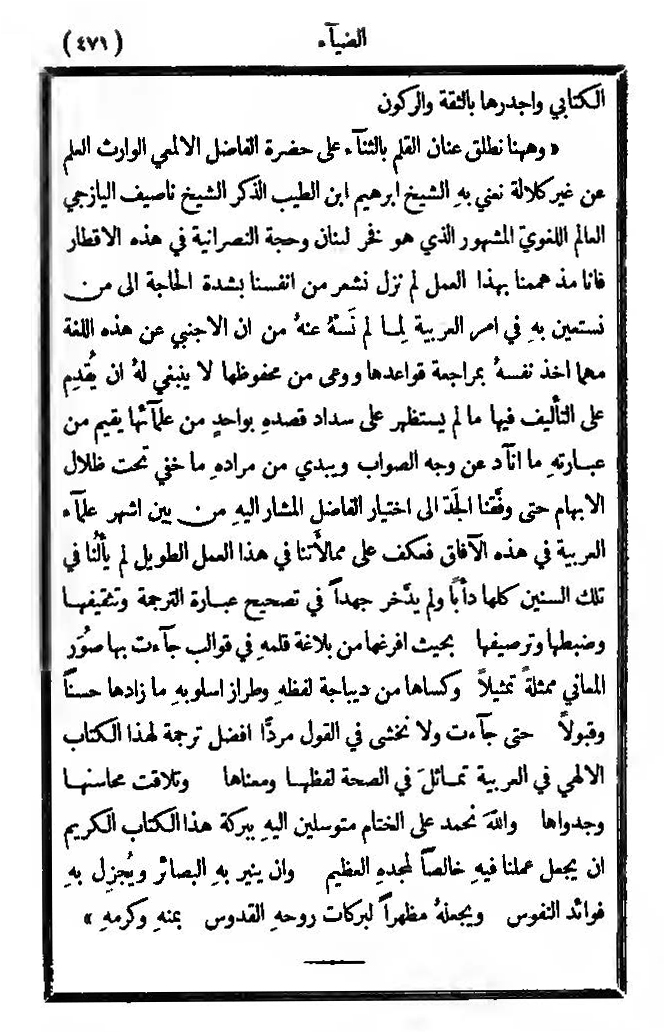 الضيآء
(٤٧٦)
الكتابي واجدرها بالثقة والركون
« وههنا نطلق عنان القلم بالثنآء على حضرة الفاضل الالمعي الوارث العلم
عن غير كلالة نعني بهِ الشيخ ابرهيم ابن الطيب الذكر الشيخ ناصيف اليازجي
العالم اللغويّ المشهور الذي هو فخر لبنان وحجة النصرانية في هذه الاقطار
فانا مذ هممنا بهذا العمل لم نزل نشعر من انفسنا بشدة الحاجة الى من
نستعين بهِ في امر العربية لِما لم نَسهُ عنهُ من ان الاجنبي عن هذه اللغة
مهما اخذ نفسهُ بمراجعة قواعدها ووعى من محفوظها لا ينبغي لهُ ان يُقدِم
على التأليف فيها ما لم يستظهر على سداد قصدهِ بواحدٍ من علمآئها يقيم من
عبارتهِ ما انآد عن وجه الصواب ويبدي من مرادهِ ما خفي تحت ظلال
الابهام حتى وفَّقنا الجَدّ الى اختيار الفاضل المشار اليهِ من بين اشهر علمآء
العربية في هذه الآفاق فعكف على ممالأتنا في هذا العمل الطويل لم يألُنا في
تلك السنين كلها دأباً ولم يدَّخر جهداً في تصحيح عبارة الترجمة وتثقيفها
وضبطها وترصيفها بحيث افرغها من بلاغة قلمهِ في قوالب جآءت بها صُوَر
المعاني ممثلةً تمثيلاً وكساها من ديباجة لفظهِ وطراز اسلوبهِ ما زادها حسناً
وقبولاً حتى جآءت ولا نخشى في القول مردًّا افضل ترجمة لهذا الكتاب
الالهي في العربية تماثَلَ في الصحة لفظها ومعناها وتلاقت محاسنها
وجدواها واللهَ نحمد على الختام متوسلين اليهِ ببركة هذا الكتاب الكريم
ان يجعل عملنا فيهِ خالصاً لمجدهِ العظيم وان ينير بهِ البصائر ويُجزِل بهِ
فوائد النفوس ويجعلهُ مظهراً لبركات روحهِ القدوس بمنهِ وكرمهِ »